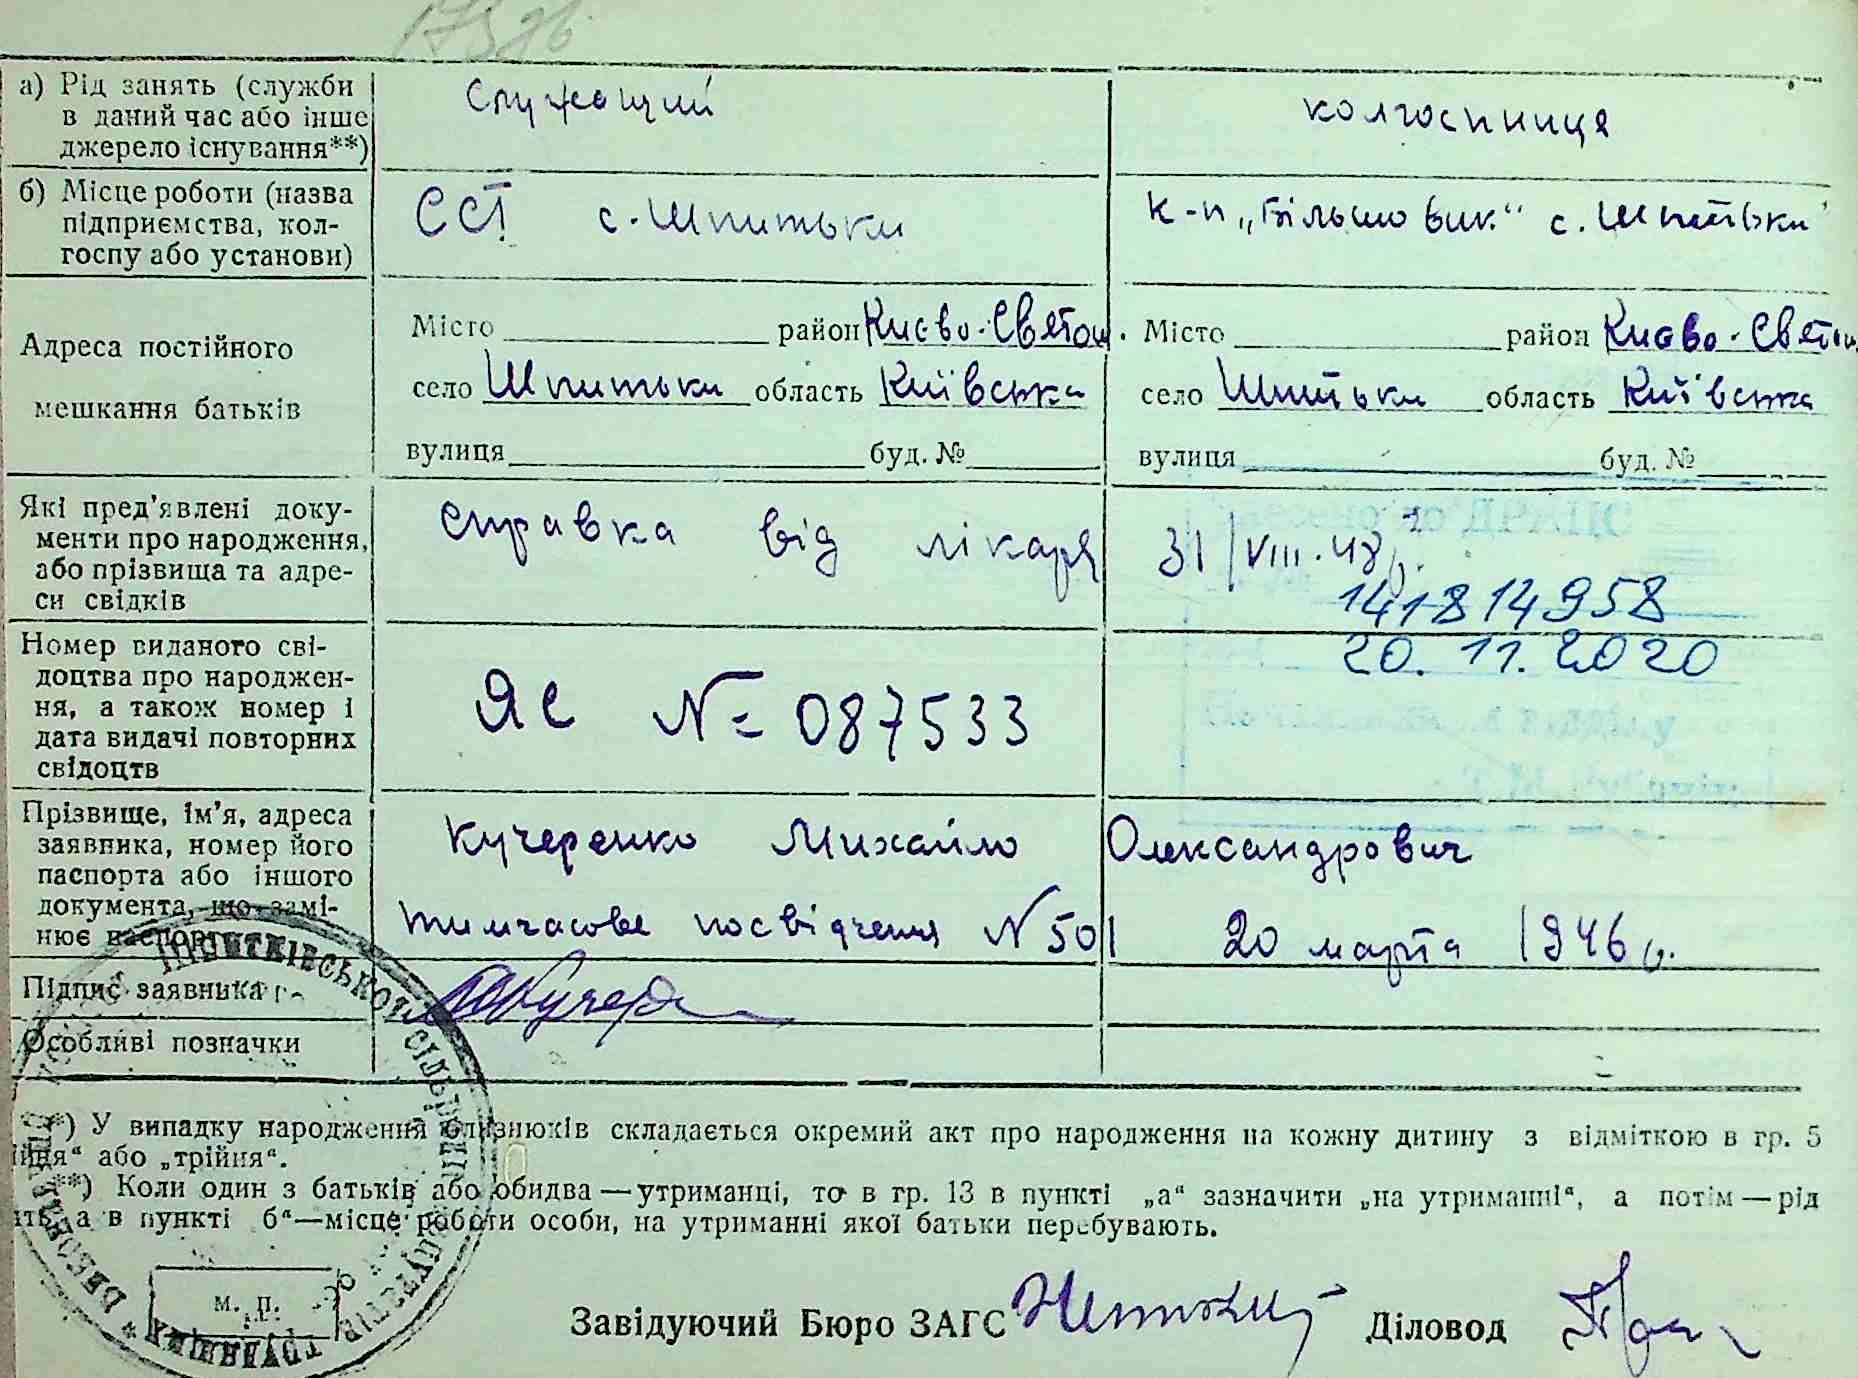 17326
а) Рід занять (служби в даний час або інше джерело існування**)
служащий
колгоспниця
б) Місце роботи (назва підприємства, колгоспу або установи)
ССТ с. Шпитьки
к-п „Більшовик“ с. Шпитьки
Адреса постійного мешкання батьків
Місто район Києво-Святош.
село Шпитьки область Київська
вулиця буд. №
Місто район Києво-Святош
село Шпитьки область Київська
вулиця буд. №
Які пред'явлені документи про народження, або прізвища та адреси свідків
справка від лікаря 31/VIII.48 р.
141814958
20.11.2020
Номер виданого свідоцтва про народження, а також номер і дата видачі повторних свідоцтв
ЯС № 087533
Прізвище, ім'я, адреса заявника, номер його паспорта або іншого документа, що замінює паспорт
Кучеренко Михайло Олександрович
тимчасове посвідчення N 501 20 марта 1946 р.
Підпис заявника
МКучер
Особливі позначки
*) У випадку народження близнюків складається окремий акт про народження на кожну дитину з відміткою в гр. 5
ійня“ або „трійня“.
**) Коли один з батьків або обидва—утриманці, то в гр. 13 в пункті „а“ зазначити „на утриманні“, а потім—рід
а в пункті б“—місце роботи особи, на утриманні якої батьки перебувають.
м. п.
Завідуючий Бюро ЗАГС
Діловод
ШПИТЬКІВСЬКОЇ СІЛЬРАДИ ДЕПУТАТІВ ТРУДЯЩИХ